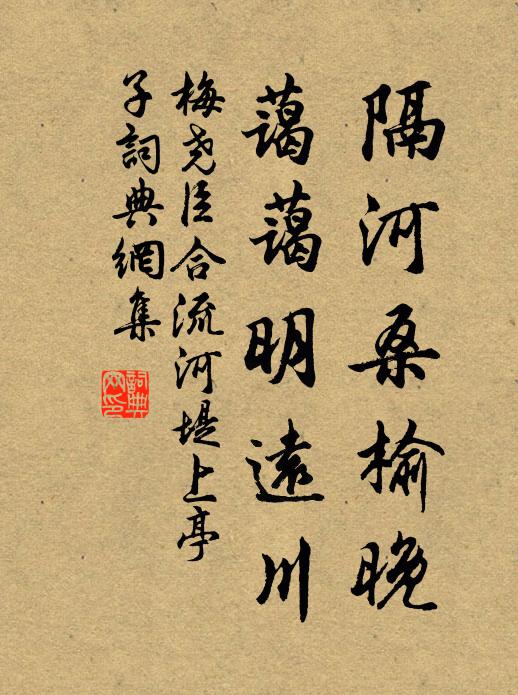 隔河桑榆晚
藹藹明遠川
梅堯臣合流河堤上亭
子詞典網集
詞典網印